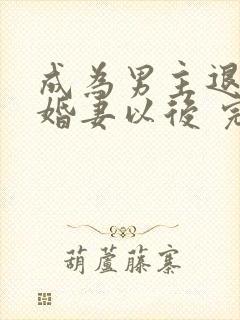 成為男主退
婚妻以後 完
葫蘆藤寨